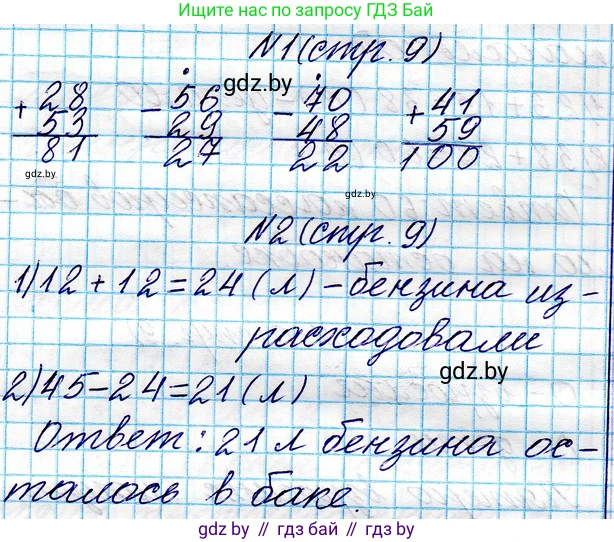 Ищите нас по запросу ГДЗ Бай
N1 (стр. 9)
gdz.by
+28 −56 −70 +41
53 29 48 59
81 27 22 100
gdz.by
gdz.by
N2 (стр. 9)
1) 12 + 12 = 24 (л) – бензина из-
расходовали
gdz.by
2) 45 – 24 = 21 (л)
Ответ: 21 л бензина ос-
талось в баке.
gdz.by // гдз бай // gdz.by